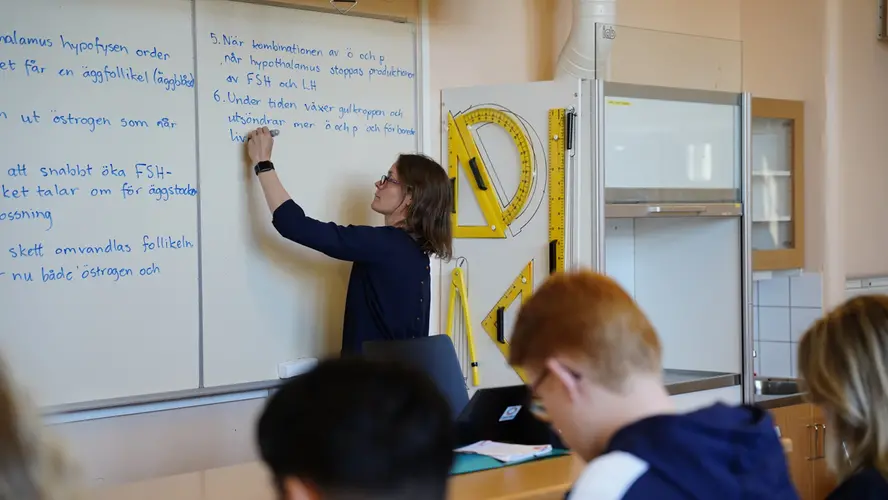 halamus hypofysen order
et får en äggfollikel (äggblås
n ut östrogen som når
att snabbt öka FSH-
ket talar om för äggstocken
ossning
skett omvandlas follikeln
nu både östrogen och
5. När kombinationen av ö och p
når hypothalamus stoppas produktionen
av FSH och LH
6. Under tiden växer gulkroppen och
utsöndrar mer ö och p och förbereder
liv